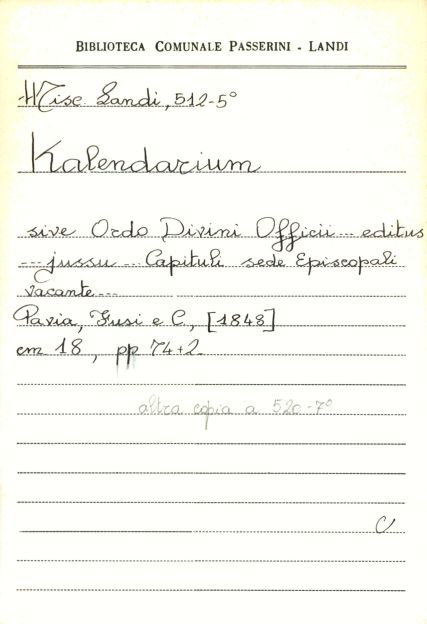 BIBLIOTECA COMUNALE PASSERINI - LANDI
Misc Landi, 512-5°
Kalendarium
sive Ordo Divini Officii ... editus
... jussu ... Capituli sede Episcopali
vacante ...
Pavia, Fusi e C., [1848]
cm 18, pp 74+2
altra copia a 520-7°
C